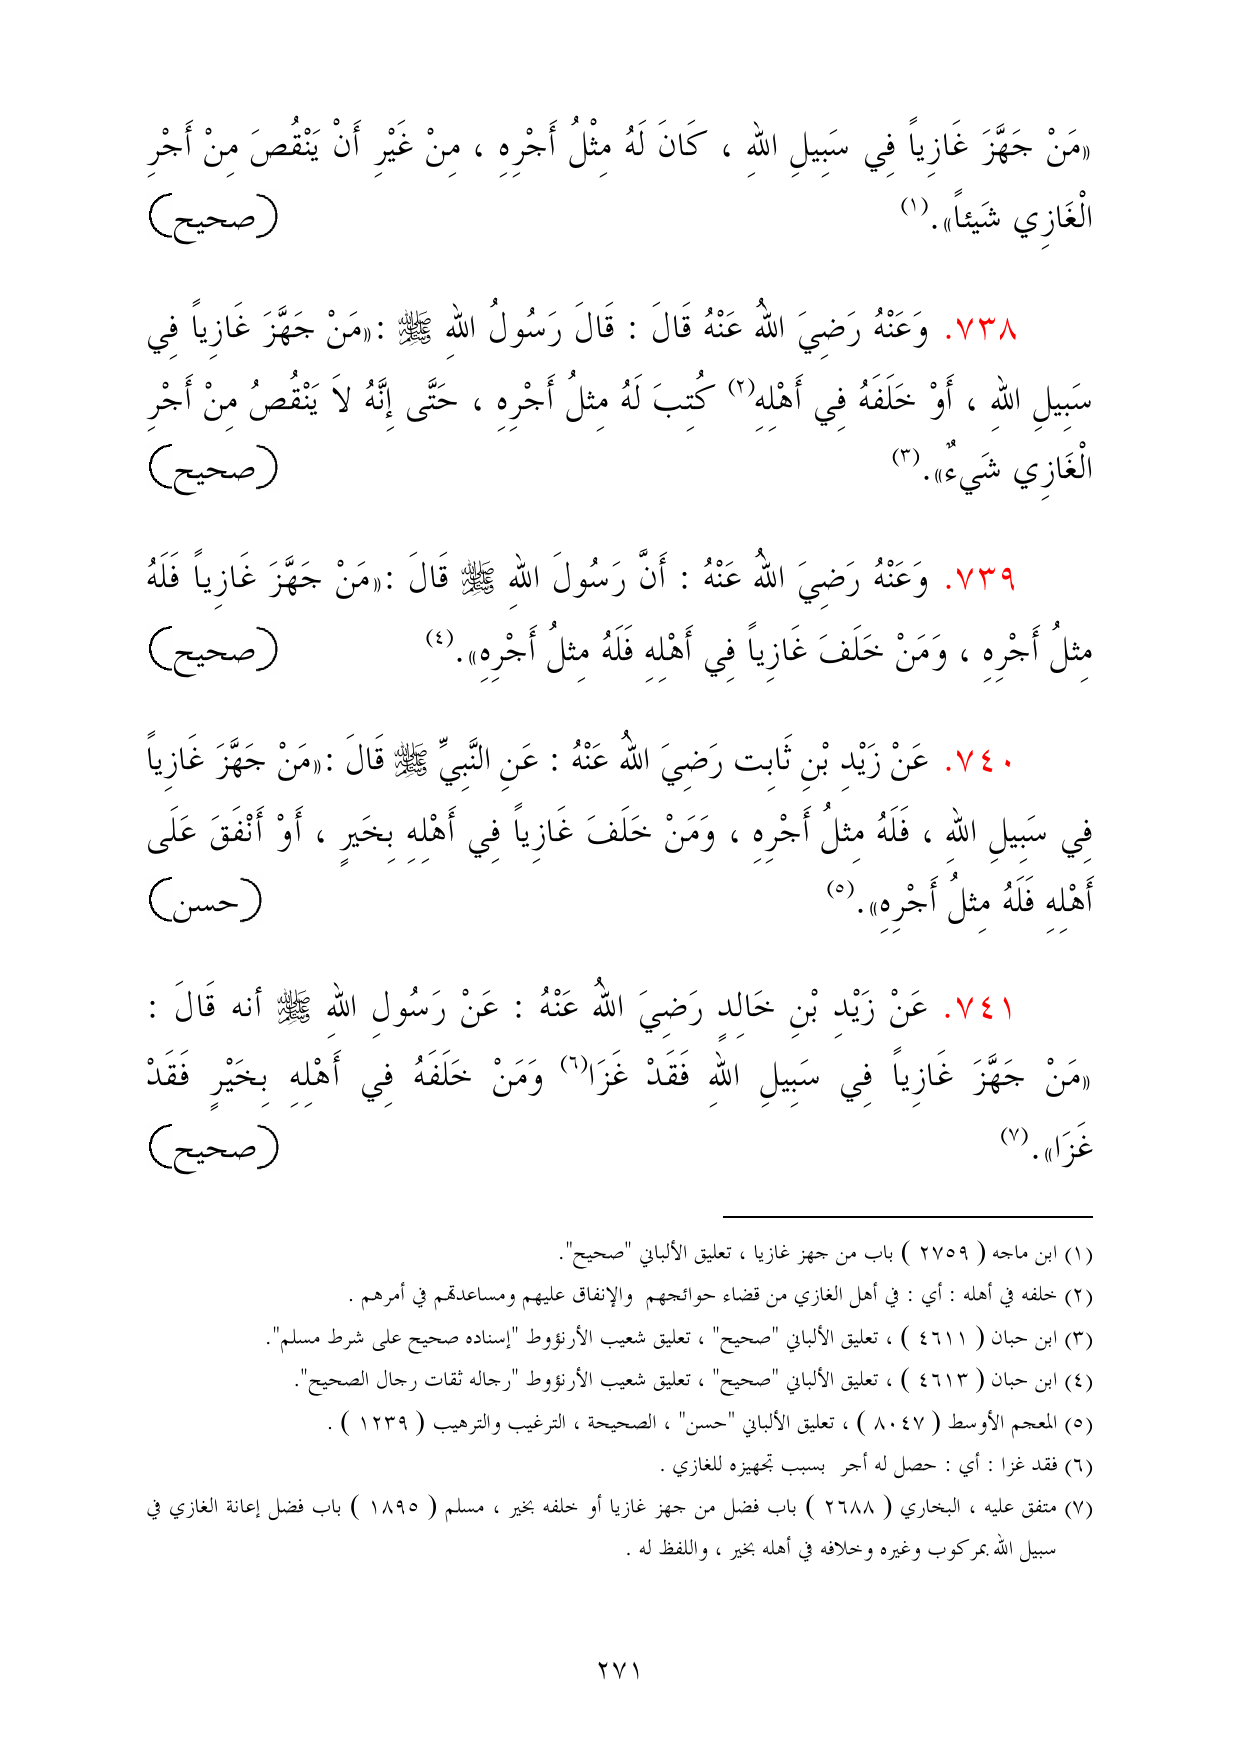 «مَنْ جَهَّزَ غَازِياً فِي سَبِيلِ اللهِ ، كَانَ لَهُ مِثْلُ أَجْرِهِ ، مِنْ غَيْرِ أَنْ يَنْقُصَ مِنْ أَجْرِ
الْغَازِي شَيئاً».(١) (صحيح)
٧٣٨. وَعَنْهُ رَضِيَ اللهُ عَنْهُ قَالَ : قَالَ رَسُولُ اللهِ ﷺ :«مَنْ جَهَّزَ غَازِياً فِي
سَبِيلِ اللهِ ، أَوْ خَلَفَهُ فِي أَهْلِهِ(٢) كُتِبَ لَهُ مِثلُ أَجْرِهِ ، حَتَّى إِنَّهُ لاَ يَنْقُصُ مِنْ أَجْرِ
الْغَازِي شَيءٌ».(٣) (صحيح)
٧٣٩. وَعَنْهُ رَضِيَ اللهُ عَنْهُ : أَنَّ رَسُولَ اللهِ ﷺ قَالَ :«مَنْ جَهَّزَ غَازِياً فَلَهُ
مِثلُ أَجْرِهِ ، وَمَنْ خَلَفَ غَازِياً فِي أَهْلِهِ فَلَهُ مِثلُ أَجْرِهِ».(٤) (صحيح)
٧٤٠. عَنْ زَيْدِ بْنِ ثَابِت رَضِيَ اللهُ عَنْهُ : عَنِ النَّبِيِّ ﷺ قَالَ :«مَنْ جَهَّزَ غَازِياً
فِي سَبِيلِ اللهِ ، فَلَهُ مِثلُ أَجْرِهِ ، وَمَنْ خَلَفَ غَازِياً فِي أَهْلِهِ بِخَيرٍ ، أَوْ أَنْفَقَ عَلَى
أَهْلِهِ فَلَهُ مِثلُ أَجْرِهِ».(٥) (حسن)
٧٤١. عَنْ زَيْدِ بْنِ خَالِدٍ رَضِيَ اللهُ عَنْهُ : عَنْ رَسُولِ اللهِ ﷺ أنه قَالَ :
«مَنْ جَهَّزَ غَازِياً فِي سَبِيلِ اللهِ فَقَدْ غَزَا(٦) وَمَنْ خَلَفَهُ فِي أَهْلِهِ بِخَيْرٍ فَقَدْ
غَزَا».(٧) (صحيح)
(١) ابن ماجه ( ٢٧٥٩ ) باب من جهز غازيا ، تعليق الألباني "صحيح".
(٢) خلفه في أهله : أي : في أهل الغازي من قضاء حوائجهم والإنفاق عليهم ومساعدتهم في أمرهم .
(٣) ابن حبان ( ٤٦١١ ) ، تعليق الألباني "صحيح" ، تعليق شعيب الأرنؤوط "إسناده صحيح على شرط مسلم".
(٤) ابن حبان ( ٤٦١٣ ) ، تعليق الألباني "صحيح" ، تعليق شعيب الأرنؤوط "رجاله ثقات رجال الصحيح".
(٥) المعجم الأوسط ( ٨٠٤٧ ) ، تعليق الألباني "حسن" ، الصحيحة ، الترغيب والترهيب ( ١٢٣٩ ) .
(٦) فقد غزا : أي : حصل له أجر بسبب تجهيزه للغازي .
(٧) متفق عليه ، البخاري ( ٢٦٨٨ ) باب فضل من جهز غازيا أو خلفه بخير ، مسلم ( ١٨٩٥ ) باب فضل إعانة الغازي في
سبيل الله بمركوب وغيره وخلافه في أهله بخير ، واللفظ له .
٢٧١